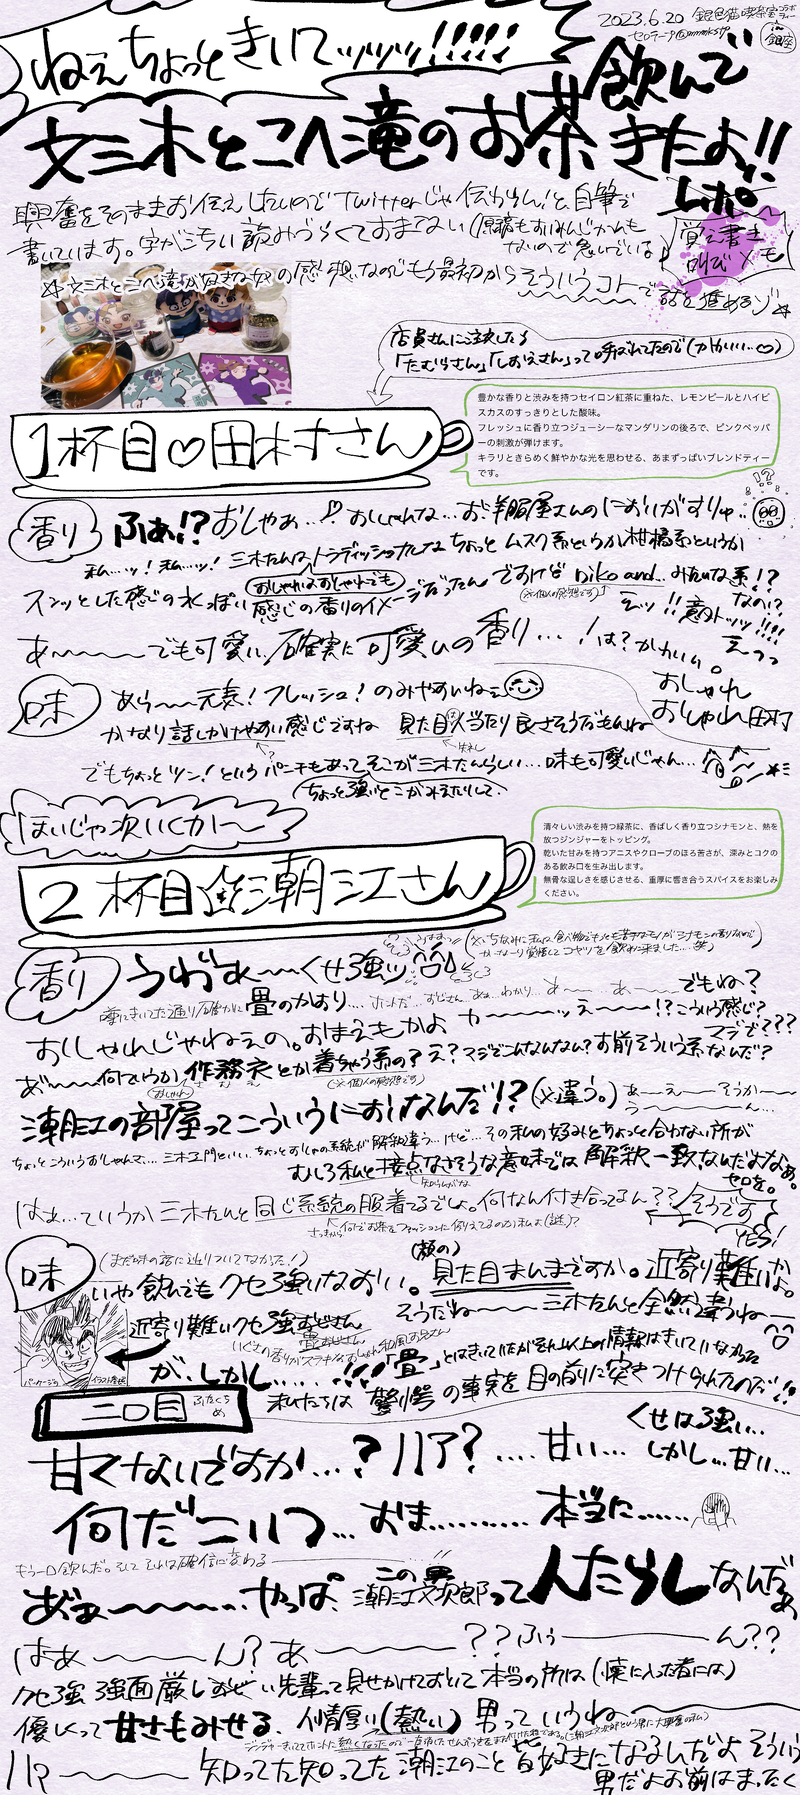 2023.6.20 銀色猫喫茶室コラボティー
セロテープ@mmmkstp
銀座
ねえちょっときいてッッッ!!!!!
飲んで
文三木とこへ滝のお茶きたよ!!
レポ
興奮をそのままお伝えしたいのでTwitterじゃ伝わらん!と、自筆で
書いています。字がこちい読みづらくておまえない(原稿もおいれんじかんも
ないので急いでいるは
覚え書き
叫びメモ
☆文三木とこへ滝が好きな奴の感想なのでもう最初からそういうコトで話を進めるゾ☆
店員さんに注文したら
「たむらさん」「しおえさん」って呼ばれてたので(かわいい…♡)
1杯目♡田村さん
豊かな香りと渋みを持つセイロン紅茶に重ねた、レモンピールとハイビ
スカスのすっきりとした酸味。
フレッシュに香り立つジューシーなマンダリンの後ろで、ピンクペッパ
ーの刺激が弾けます。
キラリときらめく鮮やかな光を思わせる、あまずっぱいブレンドティー
です。
!?
香り
ふぁ!?おしゃぁ…!?おしゃれな…お洋服屋さんのにおいがすりゅ…
私…ッ!私…ッ!三木たんはトラディッショナルなちょっとムスク系というか柑橘系というか
おしゃれはおしゃれでも
スンッとした感じの水っぽい感じの香りのイメージだったんですけどniko and...みたいな系!?
(※個人の感想です)
なの!?
えッ!!意外トッッ!!!!
えっっ
あ〜〜〜〜でも可愛い、確実に可愛いの香り…!は?かわいい。
おしゃれ
おしゃれ田村
味
あら〜〜元気!フレッシュ!のみやすいねェ
かなり話しかけやすい感じですね 見た目人当たり良さそうだもんね
?
失礼
でもちょっとツン!というパンチもあってそこが三木たんらしい…味も可愛いじゃん…
ちょっと強いとこがみえたりして
ほいじゃ次いくか〜
2杯目 潮江さん
清々しい渋みを持つ緑茶に、香ばしく香り立つシナモンと、熱を
放つジンジャーをトッピング。
乾いた甘みを持つアニスやクローブのほろ苦さが、深みとコクの
ある飲み口を生み出します。
無骨な逞しさを感じさせる、重厚に響き合うスパイスをお楽しみ
ください。
(※ちなみに私は食べ物でもっとも苦手なモノがシナモンの香りなので
かーなーり覚悟してコヤツを飲みに来ました…笑)
香り
うわぁ〜〜くせ強ッ
でもね?
噂にきいてた通り確かに畳のかおり…ホントだ…おじさん…あぁ…わかり…あ〜〜あ〜〜〜
おしゃれじゃねぇの。おまえもかよ か〜〜〜ッえ〜〜〜!?こういう感じ?
マジで???
あ〜〜〜何ていうか作務衣とか着ちゃう系の?え?マジでこんなんなん?お前そういう系なんだ?
(おしゃれ)
(※個人の感想です)
潮江の部屋ってこういうにおいなんだ!?(※違う。) あ〜え〜〜そうか〜〜
う〜〜〜ん…
ちょっとこういうおしゃれんで…三木ヱ門といい、ちょっとおしゃの系統が解釈違う…けど…その私の好みとちょっと合わない所が
むしろ私と接点なさそうな意味では解釈一致なんだよなぁ。
知らんがな
セロを。
はぁ…ていうか三木たんと同じ系統の服着てるでしょ。何なん付き合ってるん??そうです
さっきから何でお茶をファッションに例えてるのか私よ(謎)?
YES!
味
(まだ味の話に辿りついてなかった!)
いや飲んでもクセ強いなおい。見た目まんまですか。近寄り難いかよ。
(顔の)
近寄り難いクセ強おじさん
そうだね〜〜〜三木たんと全然違うね〜
畳おじさん
いぐさの香りがステキなおしゃれ和風おじさん
パッケージのイラスト参照
が、しかし…!!!「畳」とはきいていたがそれ以上の情報はきいていなかった
私たちは驚愕の事実を目の前に突きつけられたのだ!!
二口目
ふたくちめ
くせは強い…
甘くないですか…?ハア?……甘い…しかし…甘い…
何だこいつ…おま………本当に……
もう一口飲んだ。そしてそれは確信に変わる
あ゛ぁ〜〜〜…やっぱ、この男潮江文次郎って人たらしなんだぁ
はぁ〜〜〜ん?あ〜〜〜〜??ふぅ〜〜〜〜ん??
クセ強 強面厳しおぜい先輩って見せかけておいて本当の所は(懐に入った者には)
優しくって甘さもみせる、人情厚い(熱い)男っていうね〜〜〜〜
ハ?〜〜〜〜知ってた知ってた潮江のこと皆好きになるんだよそういう
男だよお前はまったく